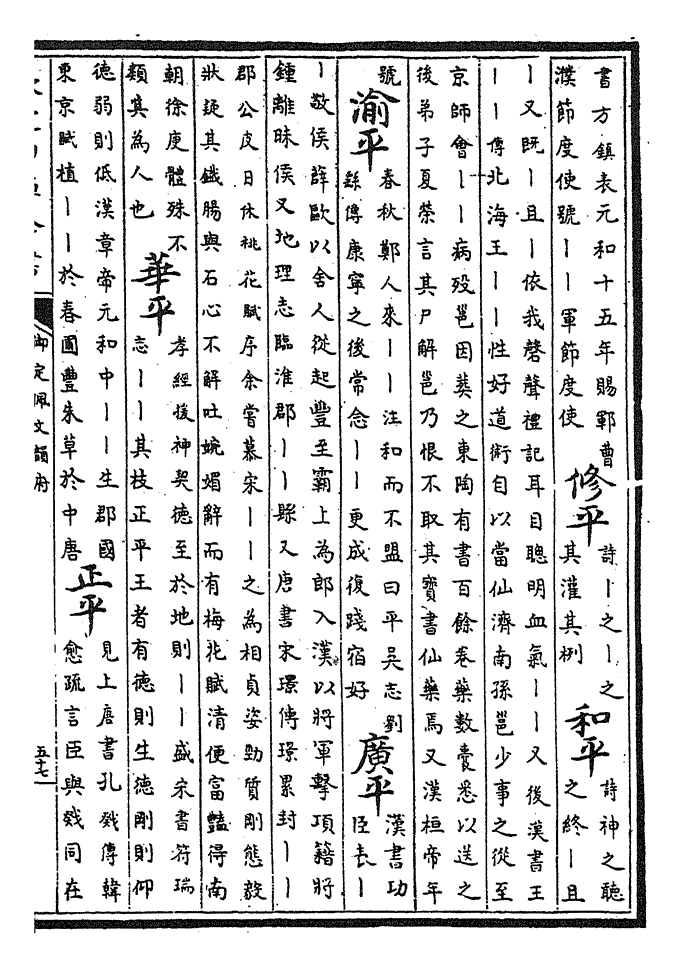 書方鎮表元和十五年賜鄆曹
濮節度使號丨丨軍節度使
修平
詩丨之丨之
其灌其栵
和平
詩神之聽
之終丨且
丨又既丨且丨依我磬聲禮記耳目聰明血氣丨丨又後漢書王
丨丨傳北海王丨丨性好道術自以當仙濟南孫邕少事之從至
京師會丨丨病歿邕因葬之東陶有書百餘卷藥數囊悉以送之
後弟子夏榮言其尸解邕乃恨不取其寶書仙藥焉又漢桓帝年
號
渝平
春秋鄭人來丨丨注和而不盟曰平吳志劉
繇傳康寧之後常念丨丨更成復踐宿好
廣平
漢書功
臣表丨
丨敬侯薛歐以舍人從起豐至霸上為郎入漢以將軍擊項籍將
鍾離眛侯又地理志臨淮郡丨丨縣又唐書宋璟傳璟累封丨丨
郡公皮日休桃花賦序余嘗慕宋丨丨之為相貞姿勁質剛態毅
狀疑其鐵腸與石心不解吐婉媚辭而有梅花賦清便富豔得南
朝徐庾體殊不
類其為人也
華平
孝經援神契德至於地則丨丨盛宋書符瑞
志丨丨其枝正平王者有德則生德剛則仰
德弱則低漢章帝元和中丨丨生郡國
東京賦植丨丨於春圃豐朱草於中唐
正平
見上唐書孔戣傳韓
愈疏言臣與戣同在
御定佩文韻府
五十七